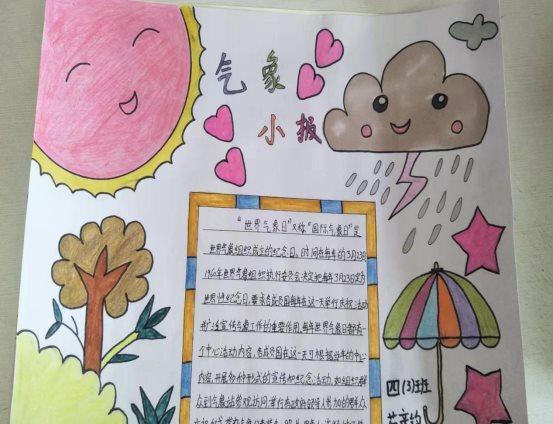 气象
小报
“世界气象日”又称“国际气象日”是
世界气象组织成立的纪念日，时间在每年的3月23日
1960年世界气象组织执行委员会决定把每年3月23日定为
世界性纪念日，要求各成员国每年在这一天举行庆祝活动
并广泛宣传气象工作的重要作用，每年世界气象日都有一
个中心活动内容，各成员国在这一天可根据当年的中心
内容，开展多种形式的宣传和纪念活动，如组织群
众到气象站参观访问，举行有政府领导人参加的群众
四(3)班